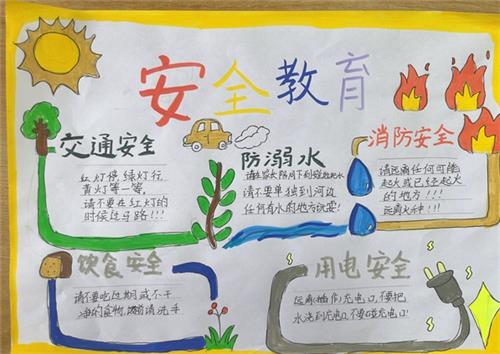 安全教育
交通安全
红灯停,绿灯行,
黄灯等一等,
请不要在红灯的
时候过马路!!!
防溺水
请不要单独到河边
任何有水的地方玩耍!
消防安全
请远离任何可能
起火或已经起火
的地方!!!
远离火种!!!
饮食安全
请不要吃过期或不干
净的食物,请洗手
用电安全
远离插作充电口,不要把
水洗到充电口,不要碰充电口!